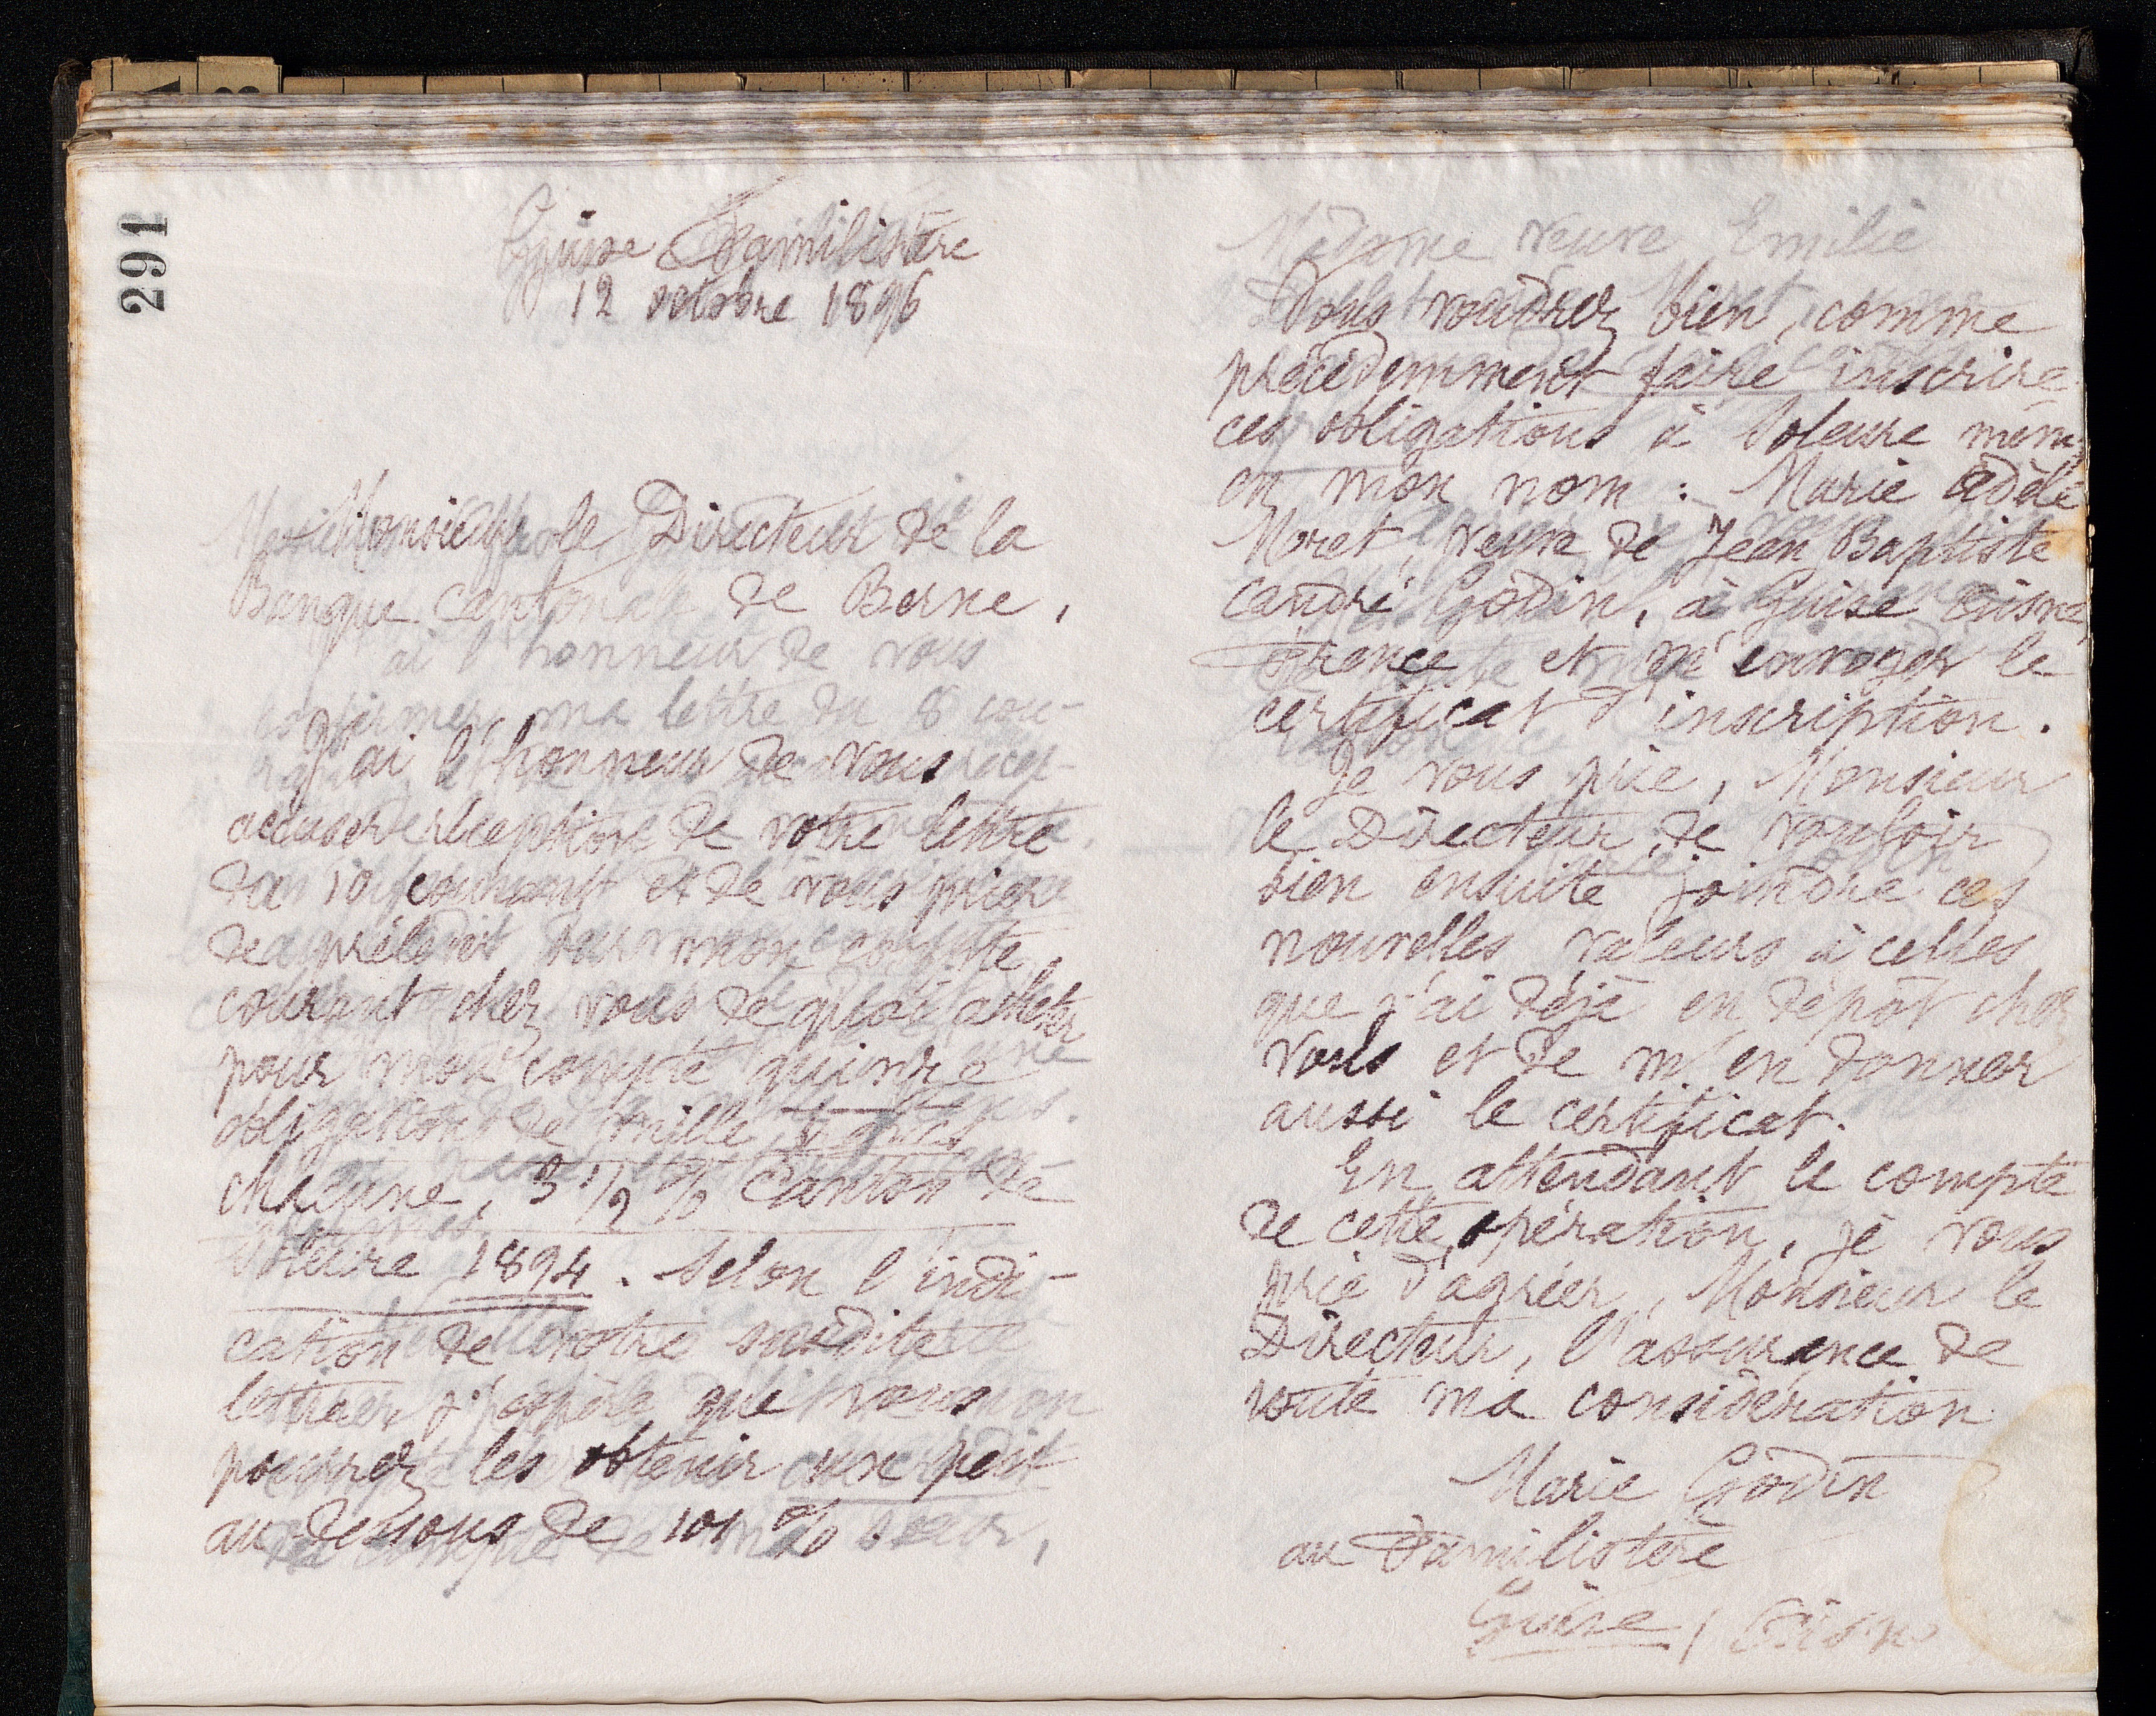 291
Guise Familistère
12 octobre 1896
Monsieur le Directeur de la
Banque cantonale de Berne,
J'ai l'honneur de vous
accuser réception de votre lettre
du 10 courant et de vous prier
de prélever sur mon compte
courant chez vous de quoi acheter
pour mon compte quinze
obligations de mille francs
chacune, 3 1/2 % Canton de
Soleure 1894. Selon l'indi-
cation de votre susdite
lettre, j'espère que vous
pourrez les obtenir un peu
au dessous de 101 %
Vous voudrez bien, comme
précédemment faire inscrire
ces obligations à Soleure même
en mon nom : Marie Adèle
Moret, veuve de Jean Baptiste
André Godin, à Guise Aisne,
France et m'envoyer le
certificat d'inscription.
Je vous prie, Monsieur
le Directeur, de vouloir
bien ensuite joindre ces
nouvelles valeurs à celles
que j'ai déjà en dépôt chez
vous et de m'en donner
aussi le certificat.
En attendant le compte
de cette opération, je vous
prie d'agréer, Monsieur le
Directeur, l'assurance de
toute ma considération
Marie Godin
au Familistère
Guise / Aisne